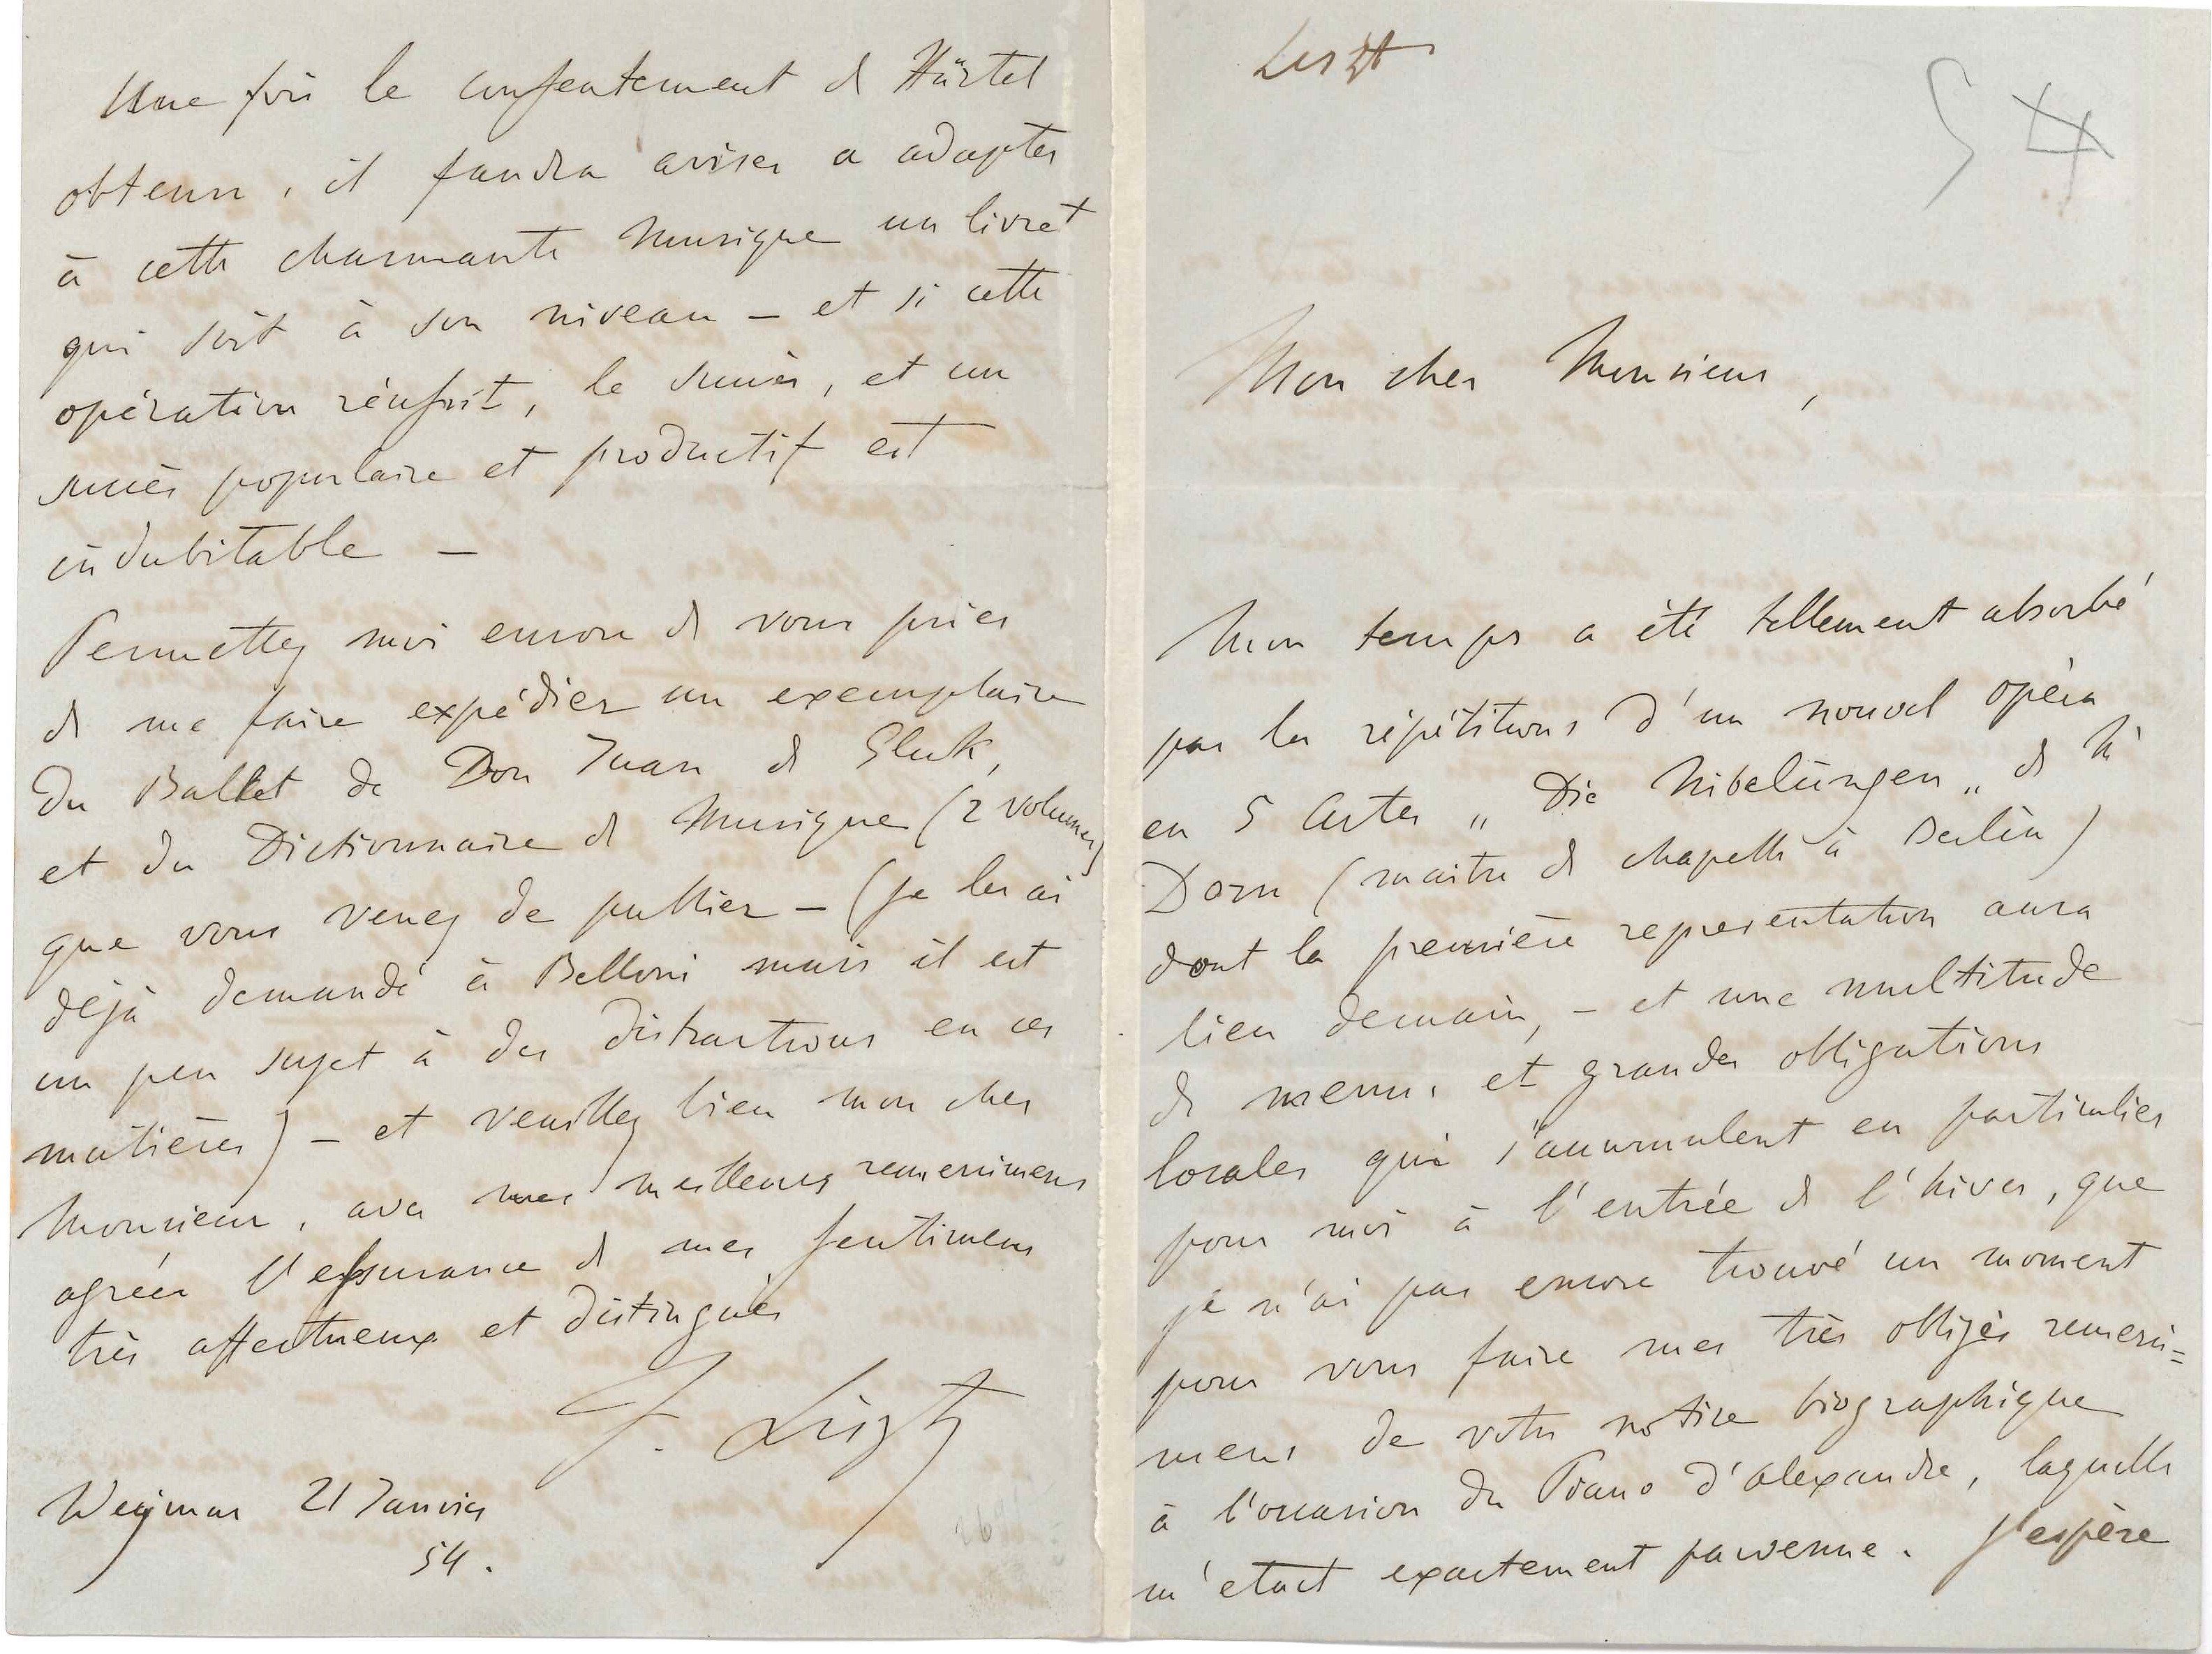 Liszt
54
Mon cher Monsieur,
Mon temps a été tellement absorbé
par les répétitions d'un nouvel opéra
en 5 Actes „ Die Nibelüngen „ de Mr
Dorn (maitre de chapelle à Berlin)
dont la première representation aura
lieu demain, – et une multitude
de menus et grandes obligations
locales qui s'accumulent en particulier
pour moi à l'entrée de l'hiver, que
je n'ai pas encore trouvé un moment
pour vous faire mes très obligés remerci=
mens de votre notice biographique
à l'occasion du Piano d'Alexandre, laquelle
m'etait exactement parvenue. J'espère
Une fois le consentement de Härtel
obtenu, il faudra aviser a adapter
à cette charmante musique un livret
qui soit à son niveau – et si cette
opération réussit, le succès, et un
succès populaire et productif est
indubitable –
Permettez moi encore de vous prier
de me faire expédier un exemplaire
du Ballet de Don Juan de Gluk,
et du Dictionnaire de Musique (2 volumes)
que vous venez de publier – (je les ai
déjà demandé à Belloni mais il est
un peu sujet à des distractions en ces
matières) – et veuillez bien mon cher
Monsieur, avec mes meilleurs remercimens
agréer l'assurance de mes sentimens
très affectueux et distingués
F. Liszt
Weymar 21 Janvier
54.